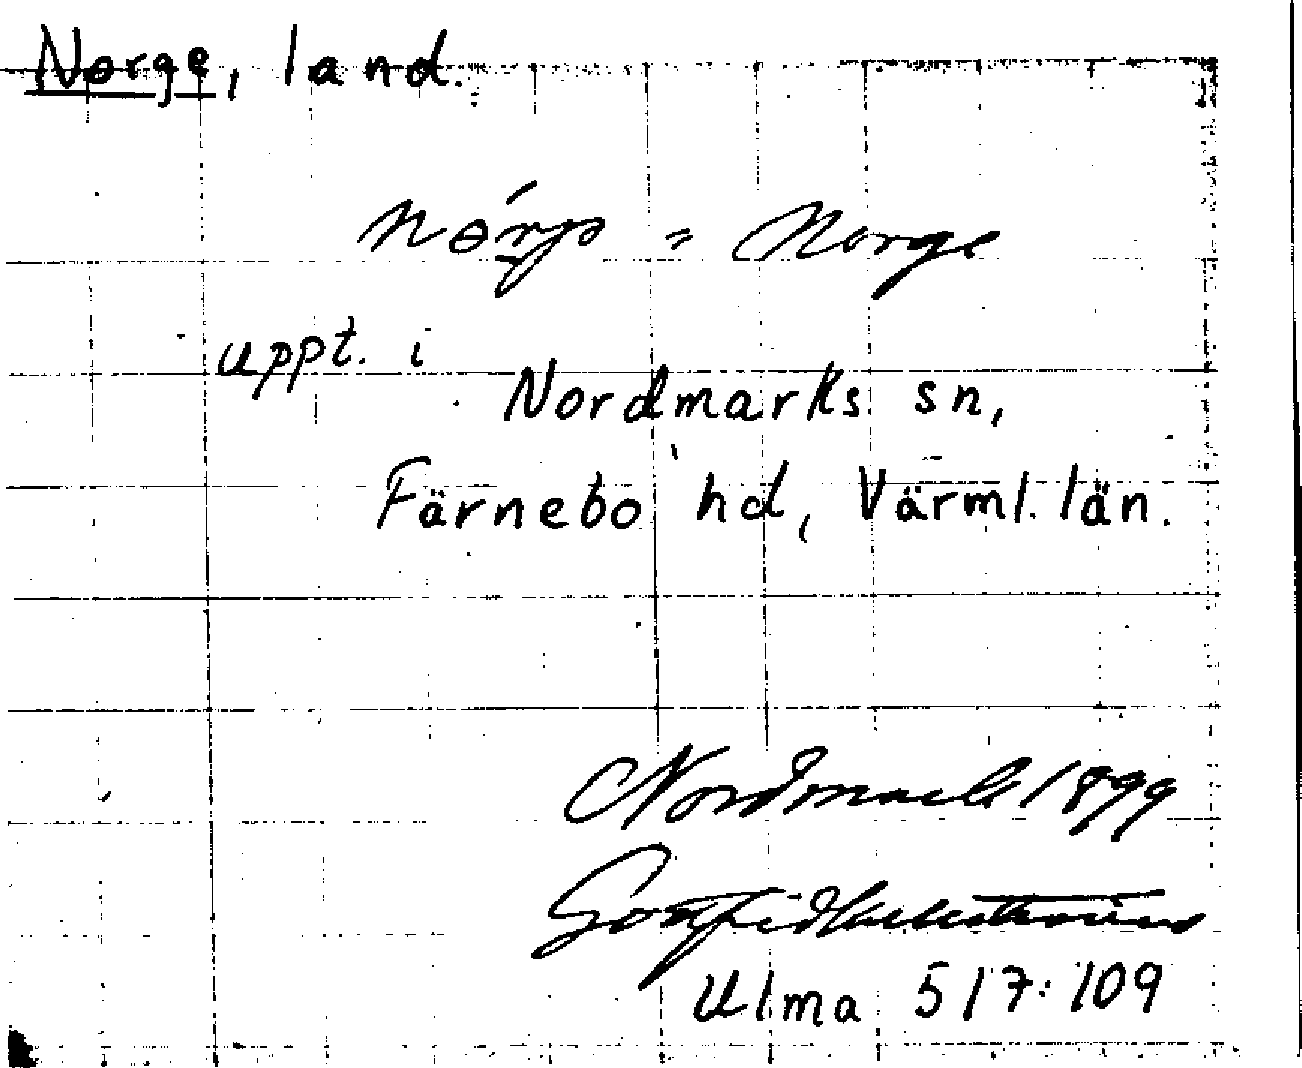 Norge, land.
= Norge
uppt. i
Nordmarks sn,
Färnebo hd, Värml. län.
Nordmark 1899
Gottfrid Kallstenius
Ulma 517:109